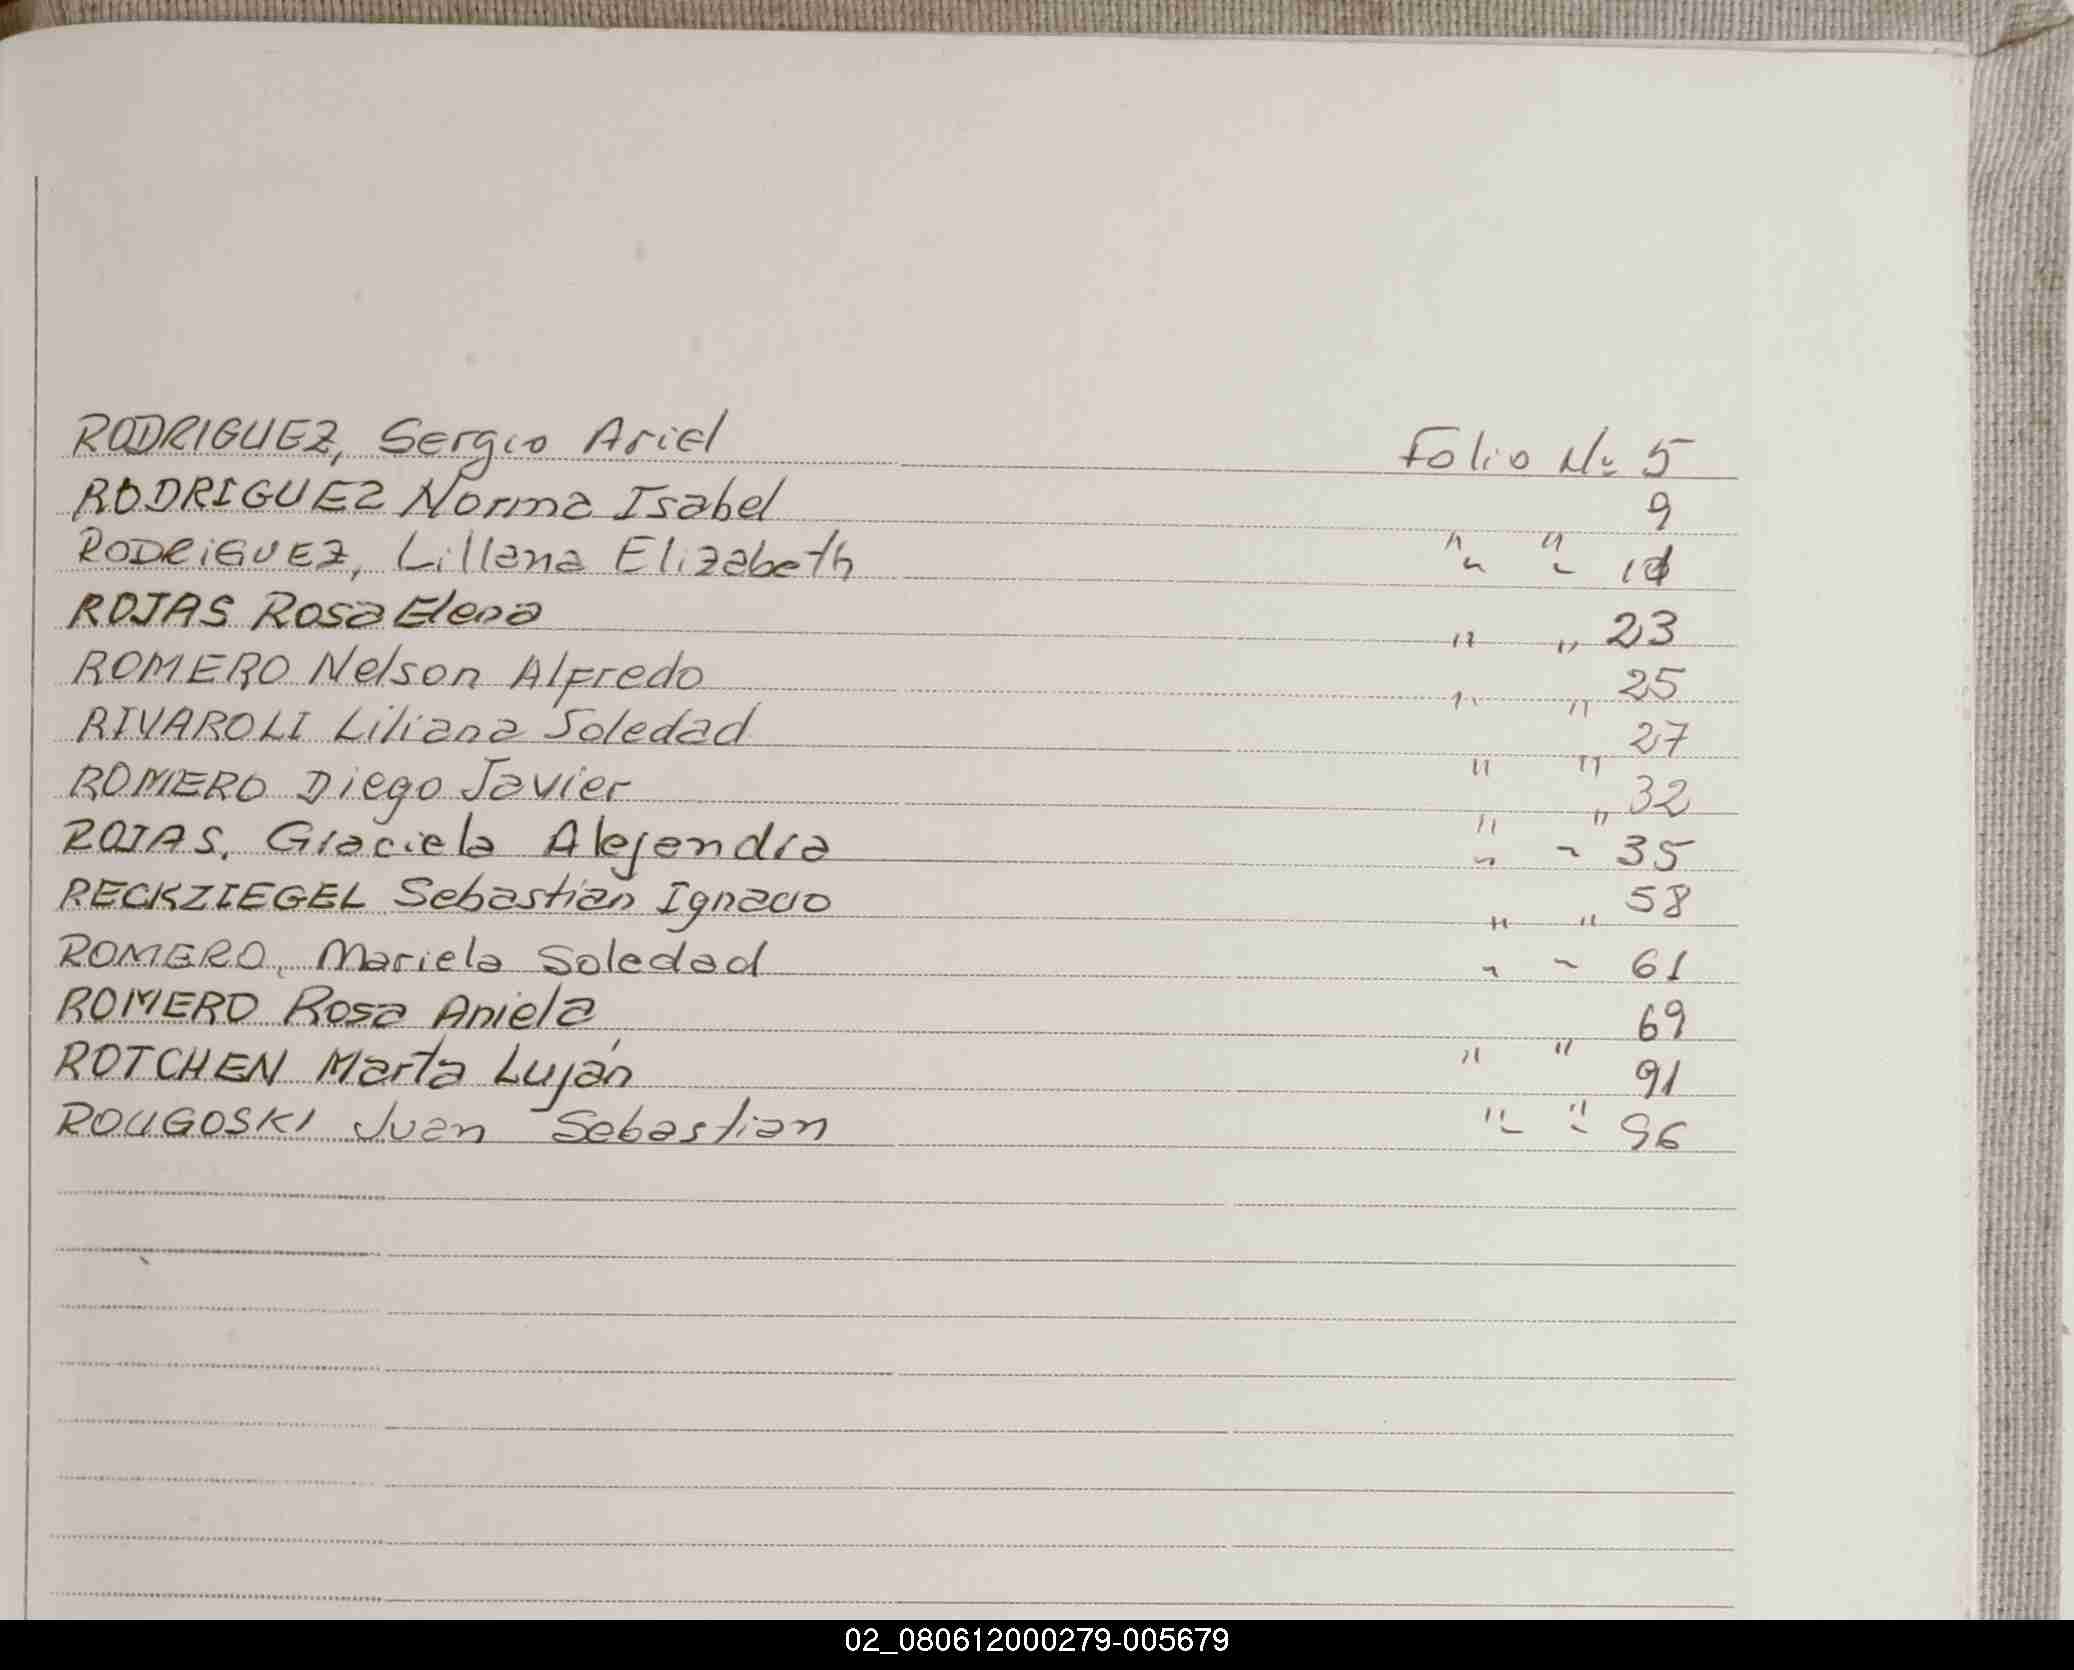 RODRIGUEZ, Sergio Ariel Folio Nº 5
RODRIGUEZ Norma Isabel 9
RODRiGUEZ, Lillana Elizabeth " "
ROJAS Rosa Elena " " 23
ROMERO Nelson Alfredo " " 25
RIVAROLI Liliana Soledad " " 27
ROMERO Diego Javier " " 32
ROJAS, Graciela Alejandra " " 35
RECKZIEGEL Sebastian Ignacio " " 58
ROMERO, Mariela Soledad " " 61
ROMERO Rosa Aniela 69
ROTCHEN Marta Luján " " 91
ROUGOSKI Juan Sebastian " " 96
02_080612000279-005679